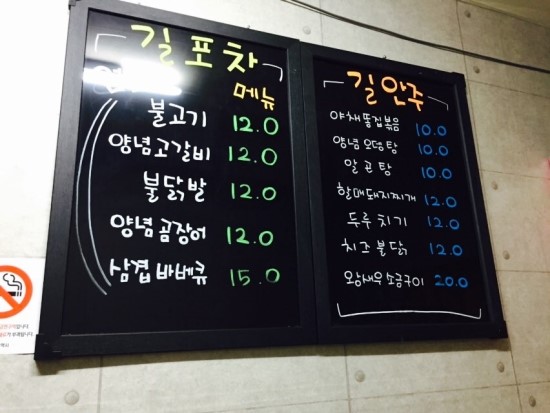 길포차
메뉴
불고기 12.0
양념고갈비 12.0
불닭발 12.0
양념곰장어 12.0
삼겹바베큐 15.0
길안주
야채똥집볶음 10.0
양념오뎅탕 10.0
알곤탕 10.0
할매돼지찌개 12.0
두루치기 12.0
치즈불닭 12.0
왕새우소금구이 20.0